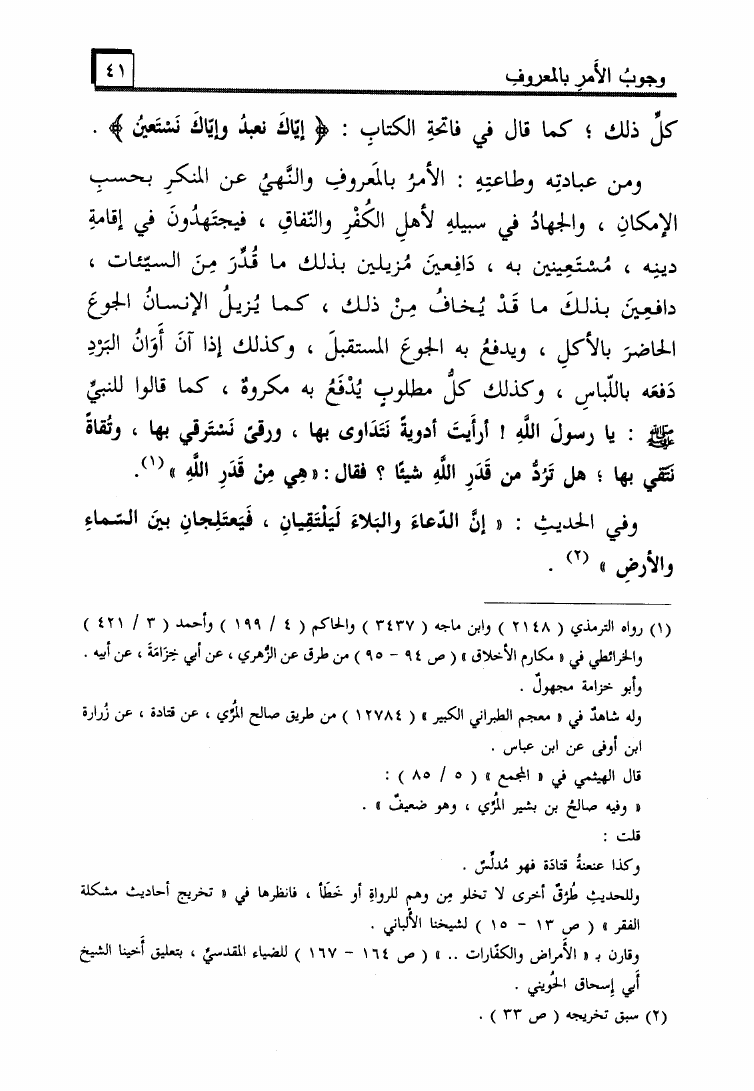 وجوبُ الأَمرِ بالمعروفِ
٤١
كلِّ ذلك ؛ كما قال في فاتحةِ الكتابِ : ﴿ إيّاكَ نعبدُ وإيّاكَ نَسْتَعينُ ﴾ .
ومن عبادتِه وطاعتِهِ : الأمرُ بالمَعروفِ والنَّهيُ عن المنكرِ بحسبِ
الإمكانِ ، والجهادُ في سبيلهِ لأهلِ الكُفْرِ والنّفاقِ ، فيجتَهدُونَ في إقامةِ
دينِه ، مُسْتَعِينين به ، دَافِعينَ مُزيلين بذلك ما قُدِّرَ مِنَ السيّئات ،
دافعِينَ بذلكَ ما قَدْ يُخافُ مِنْ ذلك ، كما يُزيلُ الإنسانُ الجوعَ
الحاضرَ بالأكلِ ، ويدفعُ به الجوعَ المستقبلَ ، وكذلك إذا آنَ أَوَانُ البَرْدِ
دَفعَه باللّباسِ ، وكذلك كلُّ مطلوبٍ يُدْفَعُ به مكروهٌ ، كما قالوا للنبيِّ
ﷺ : يا رسولَ اللَّهِ ! أرأيتَ أدويةً نَتَداوى بها ، ورقىً نَسْتَرقي بها ، وتُقاةً
نَتَّقي بها ؛ هل تَرُدُّ من قَدَرِ اللَّهِ شيئًا ؟ فقال : « هِي مِنْ قَدَرِ اللَّهِ » (١).
وفي الحديثِ : « إنَّ الدّعاءَ والبَلاءَ لَيَلْتَقِيانِ ، فَيَعتَلِجانِ بينَ السّماءِ
والأرضِ » (٢) .
(١) رواه الترمذي ( ٢١٤٨ ) وابن ماجه ( ٣٤٣٧ ) والحاكم ( ٤ / ١٩٩ ) وأحمد ( ٣ / ٤٢١ )
والخرائطي في « مكارم الأخلاق » ( ص ٩٤ - ٩٥ ) من طرق عن الزُهري ، عن أبي خِزامَةَ ، عن أبيه .
وأبو خزامة مجهولٌ .
وله شاهدٌ في « معجم الطبراني الكبير » ( ١٢٧٨٤ ) من طريق صالح المُرِّي ، عن قتادة ، عن زُرارة
ابن أوفى عن ابن عباس .
قال الهيثمي في « المجمع » ( ٥ / ٨٥ ) :
« وفيه صالحُ بن بشير المُرِّي ، وهو ضعيفٌ » .
قلت :
وكذا عنعنةُ قتادَة فهو مُدلِّسٌ .
وللحديثِ طُرُقٌ أخرى لا تخلو مِن وهم للرواةِ أو خَطَأ ، فانظرها في « تخريج أحاديث مشكلة
الفقر » ( ص ١٣ - ١٥ ) لشيخنا الأَلباني .
وقارن بـ « الأَمراض والكفّارات .. » ( ص ١٦٤ - ١٦٧ ) للضياء المقدسيِّ ، بتعليق أخينا الشيخ
أَبي إِسحاق الحُويني .
(٢) سبق تخريجه ( ص ٣٣ ) .